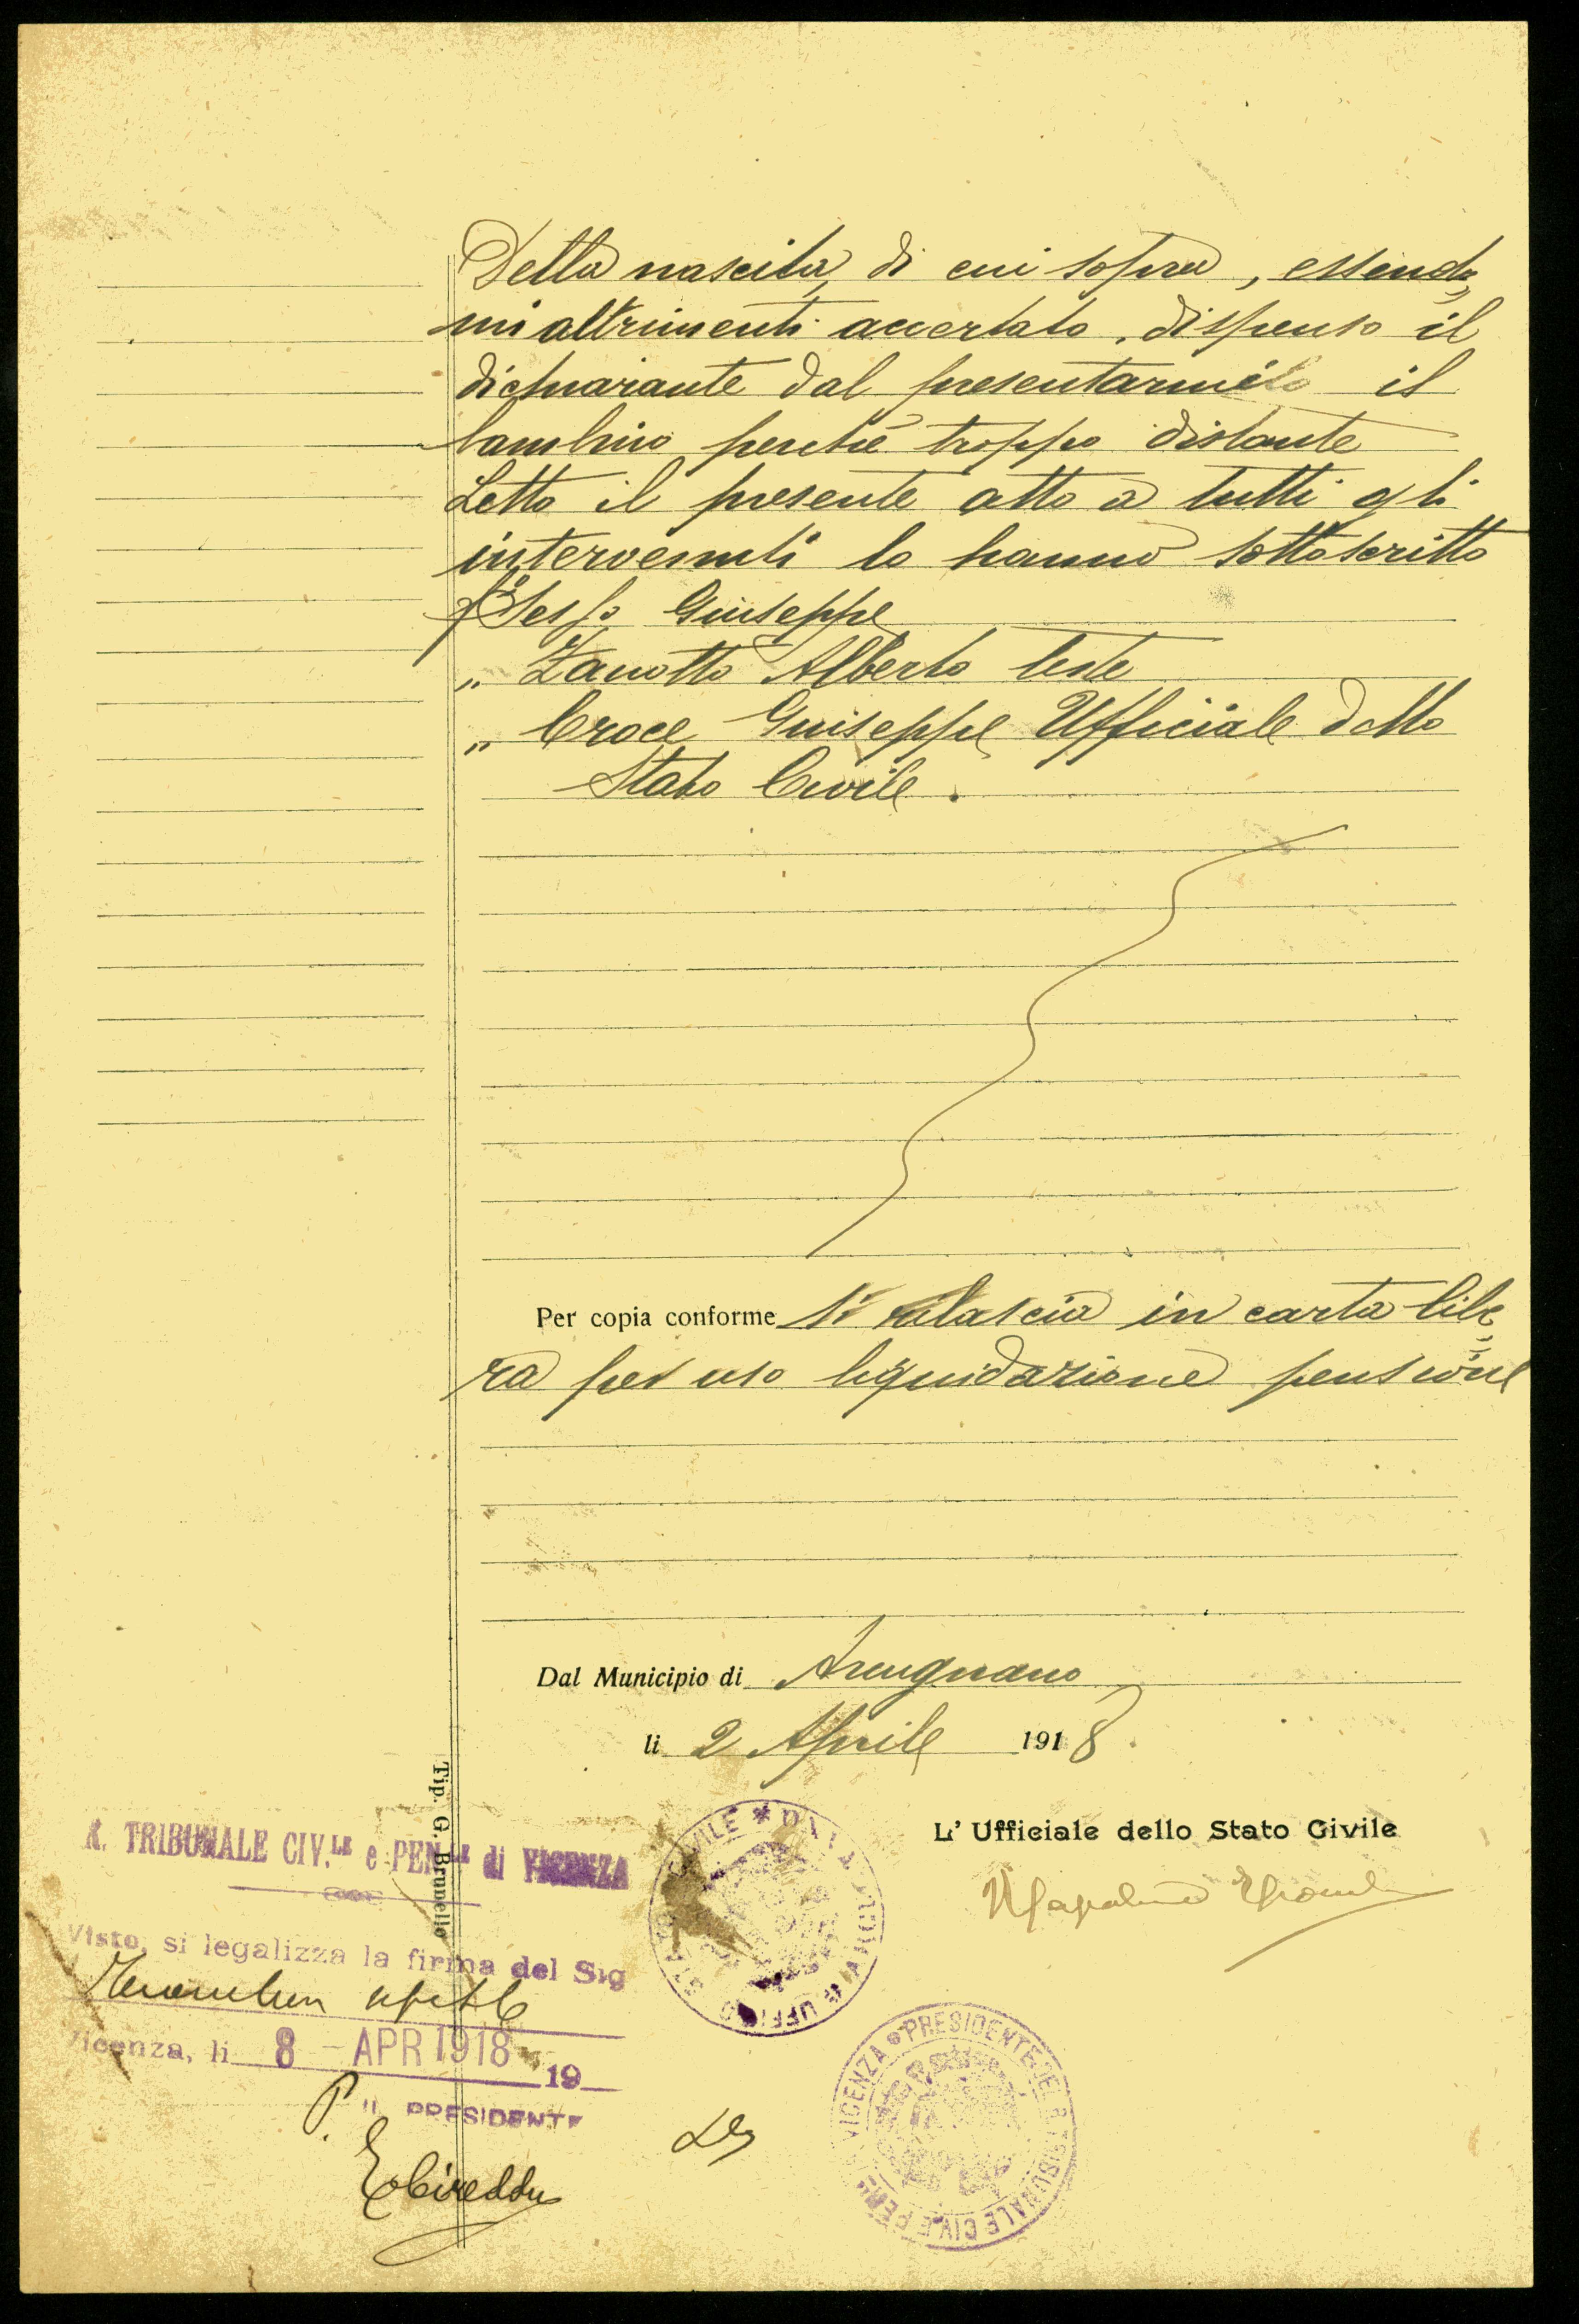 Della nascita, di cui sopra, essendo
mi altrimenti accertato, dispenso il
dichiarante dal presentarmi il
bambino perchè troppo distante
Letto il presente atto a tutti gli
intervenuti lo hanno sottoscritto
Giuseppe
„ Zanotto Alberto teste
„ Croce Giuseppe Ufficiale dello
Stato Civile.
Per copia conforme si rilascia in carta libe
ra per uso liquidazione pensione
Dal Municipio di Arcugnano
li 2 Aprile 1918.
L' Ufficiale dello Stato Civile
Tip. G. Brunello
R. TRIBUNALE CIV.LE e PEN.LE di VICENZA
Visto, si legalizza la firma del Sig
Vicenza, li 8 - APR 1918 19
P. IL PRESIDENTE
STATO CIVILE * UFFICIO
PRESIDENTE DEL R. TRIBUNALE CIV. E PEN. VICENZA